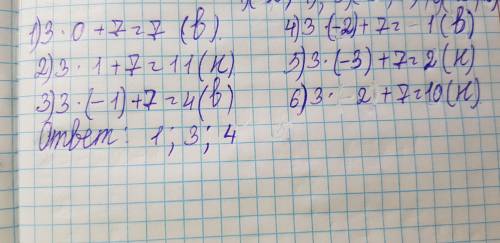 1) 3 · 0 + 7 = 7 (в)
2) 3 · 1 + 7 = 11 (н)
3) 3 · (-1) + 7 = 4 (в)
Ответ: 1; 3; 4
4) 3 · (-2) + 7 = -1 (в)
5) 3 · (-3) + 7 = 2 (н)
6) 3 · 2 + 7 = 10 (н)